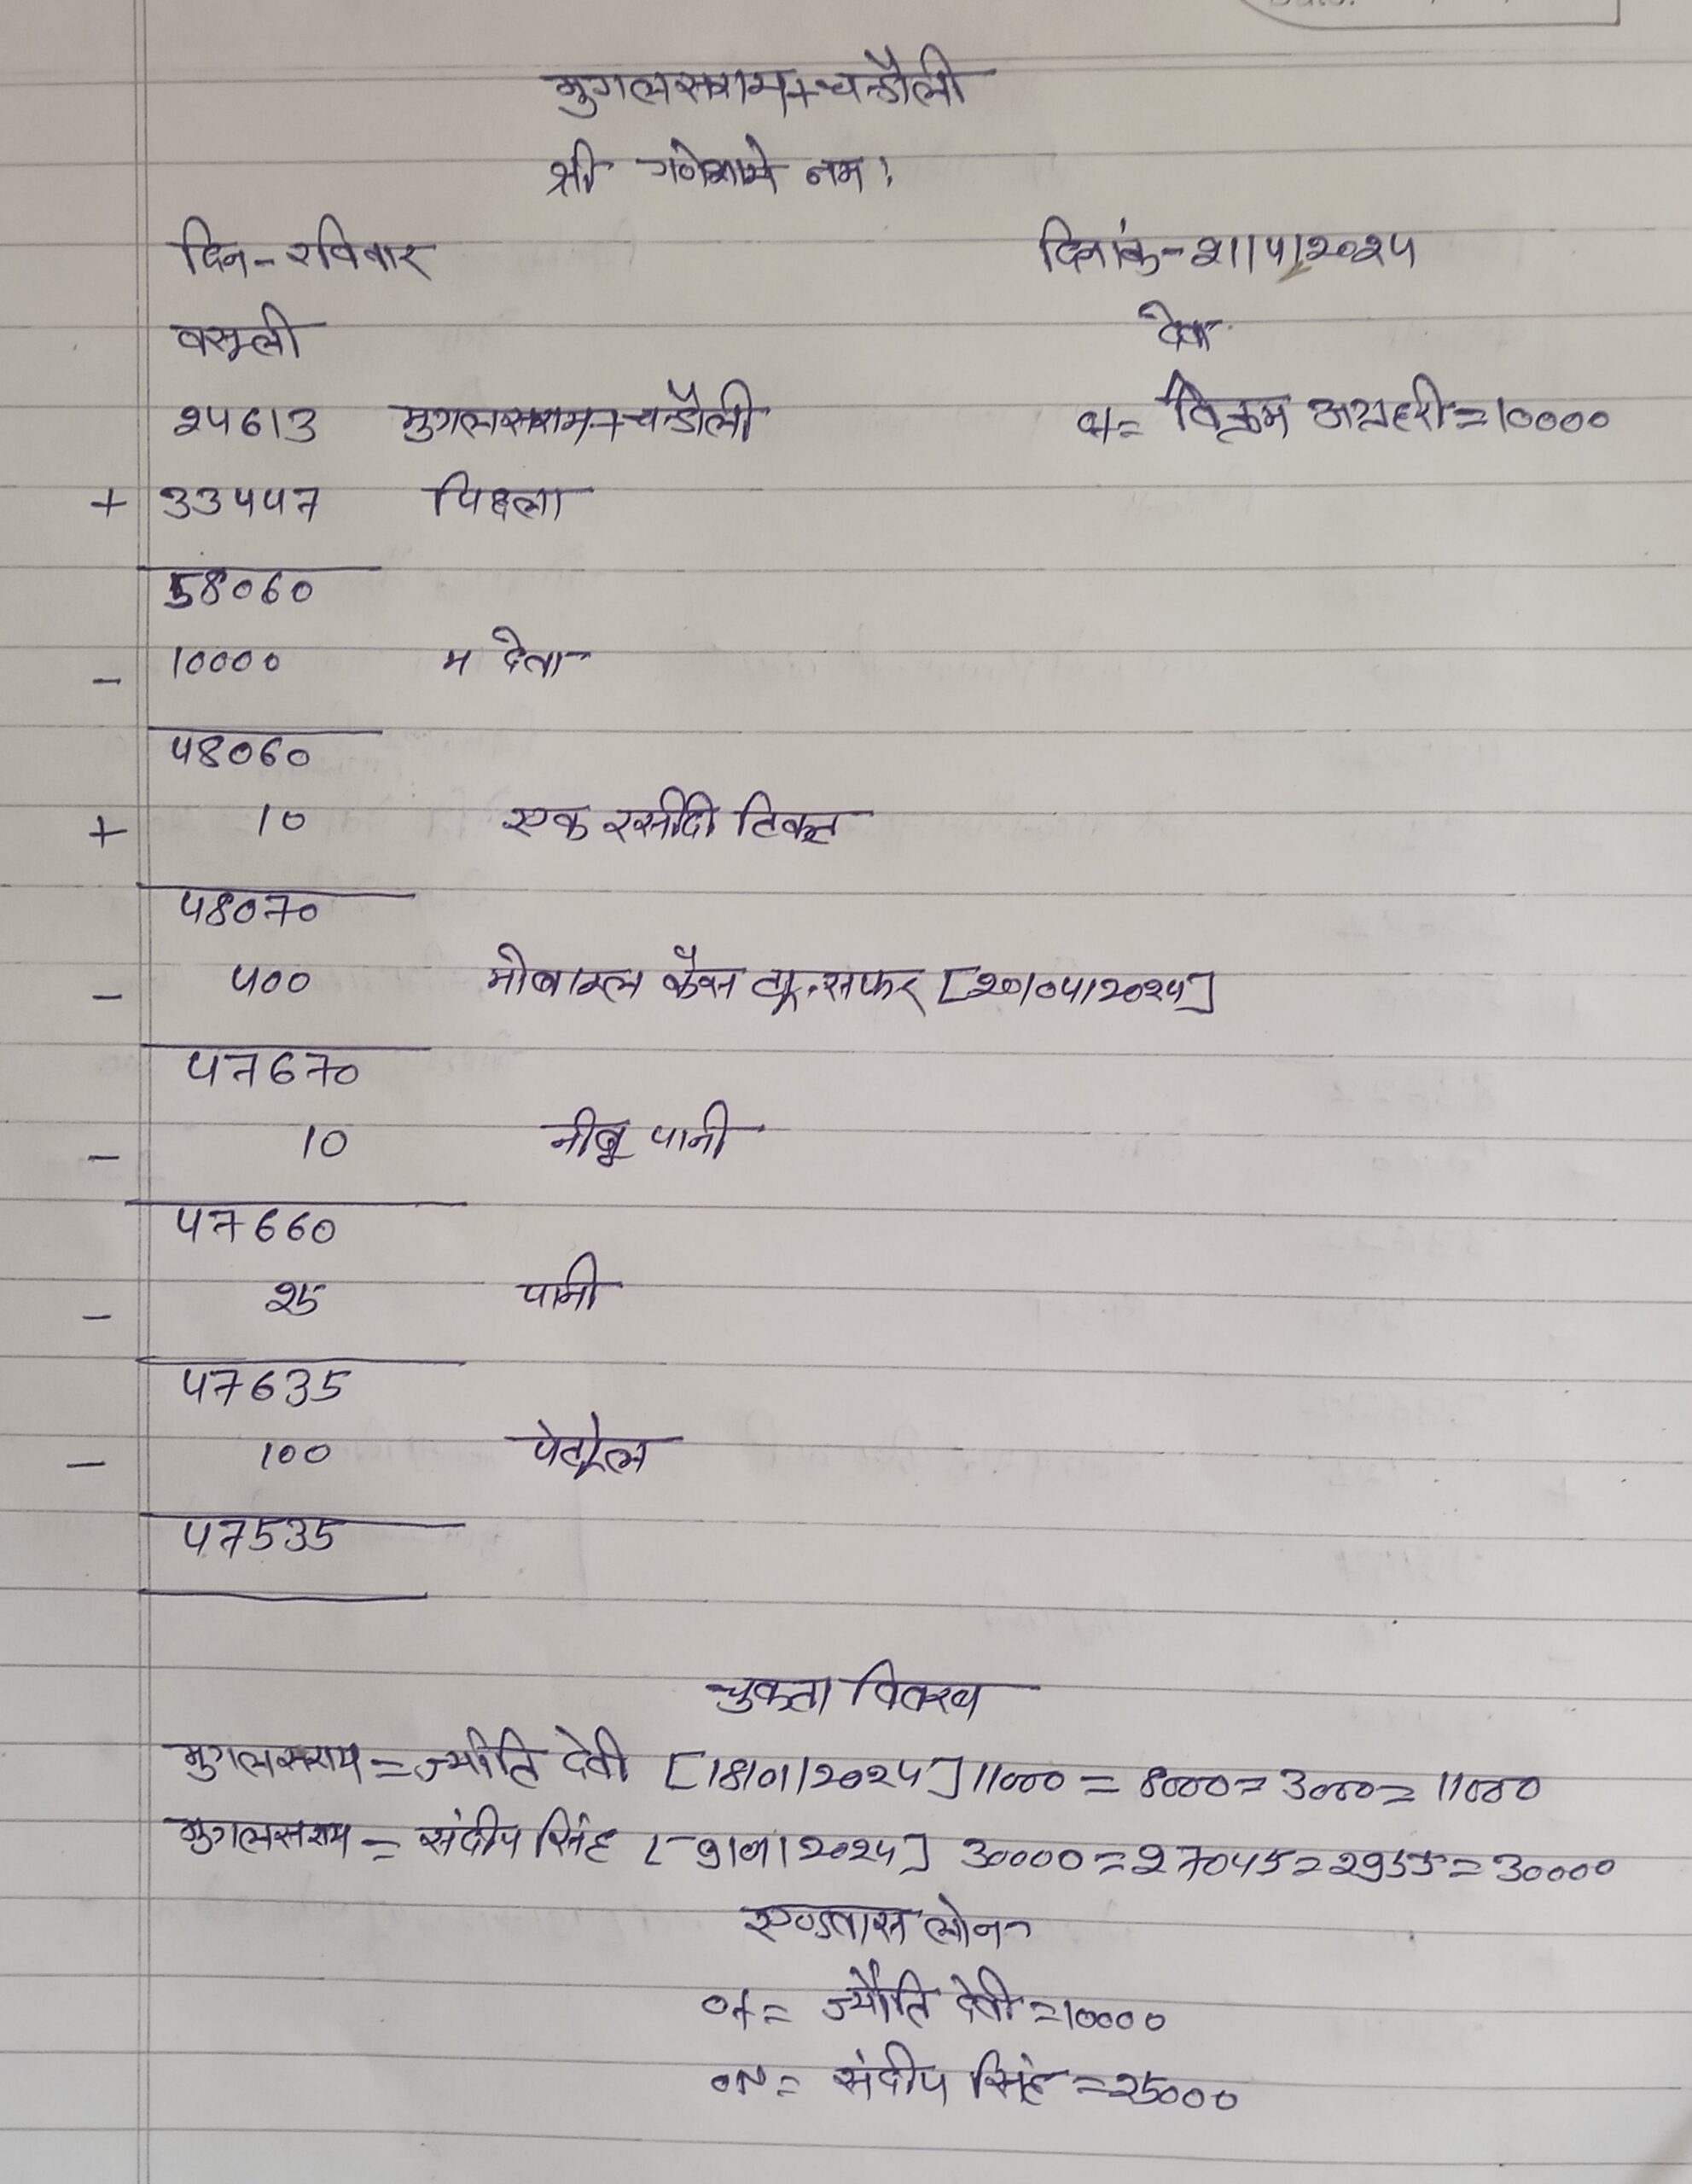 मुगलसराय+चन्दौली
श्री गणेशाये नम:
दिन-रविवार दिनांक-21/4/2024
वसूली देवा
24613 मुगलसराय+चन्दौली विक्रम अग्रहरी=10000
+ 33447 पिछला
58060
- 10000 म देवा
48060
+ 10 एक रसीदी टिकट
48070
- 400 मोबाइल कैश ट्रांसफर [20/04/2024]
47670
- 10 नीबू पानी
47660
- 25 पानी
47635
- 100 पेट्रोल
47535
चुकता विवरण
मुगलसराय=ज्योति देवी [18/01/2024] 11000=8000=3000=11000
मुगलसराय=संदीप सिंह [-9/01/2024] 30000=27045=2955=30000
एडवांस लोन
01= ज्योति देवी=10000
02= संदीप सिंह=25000